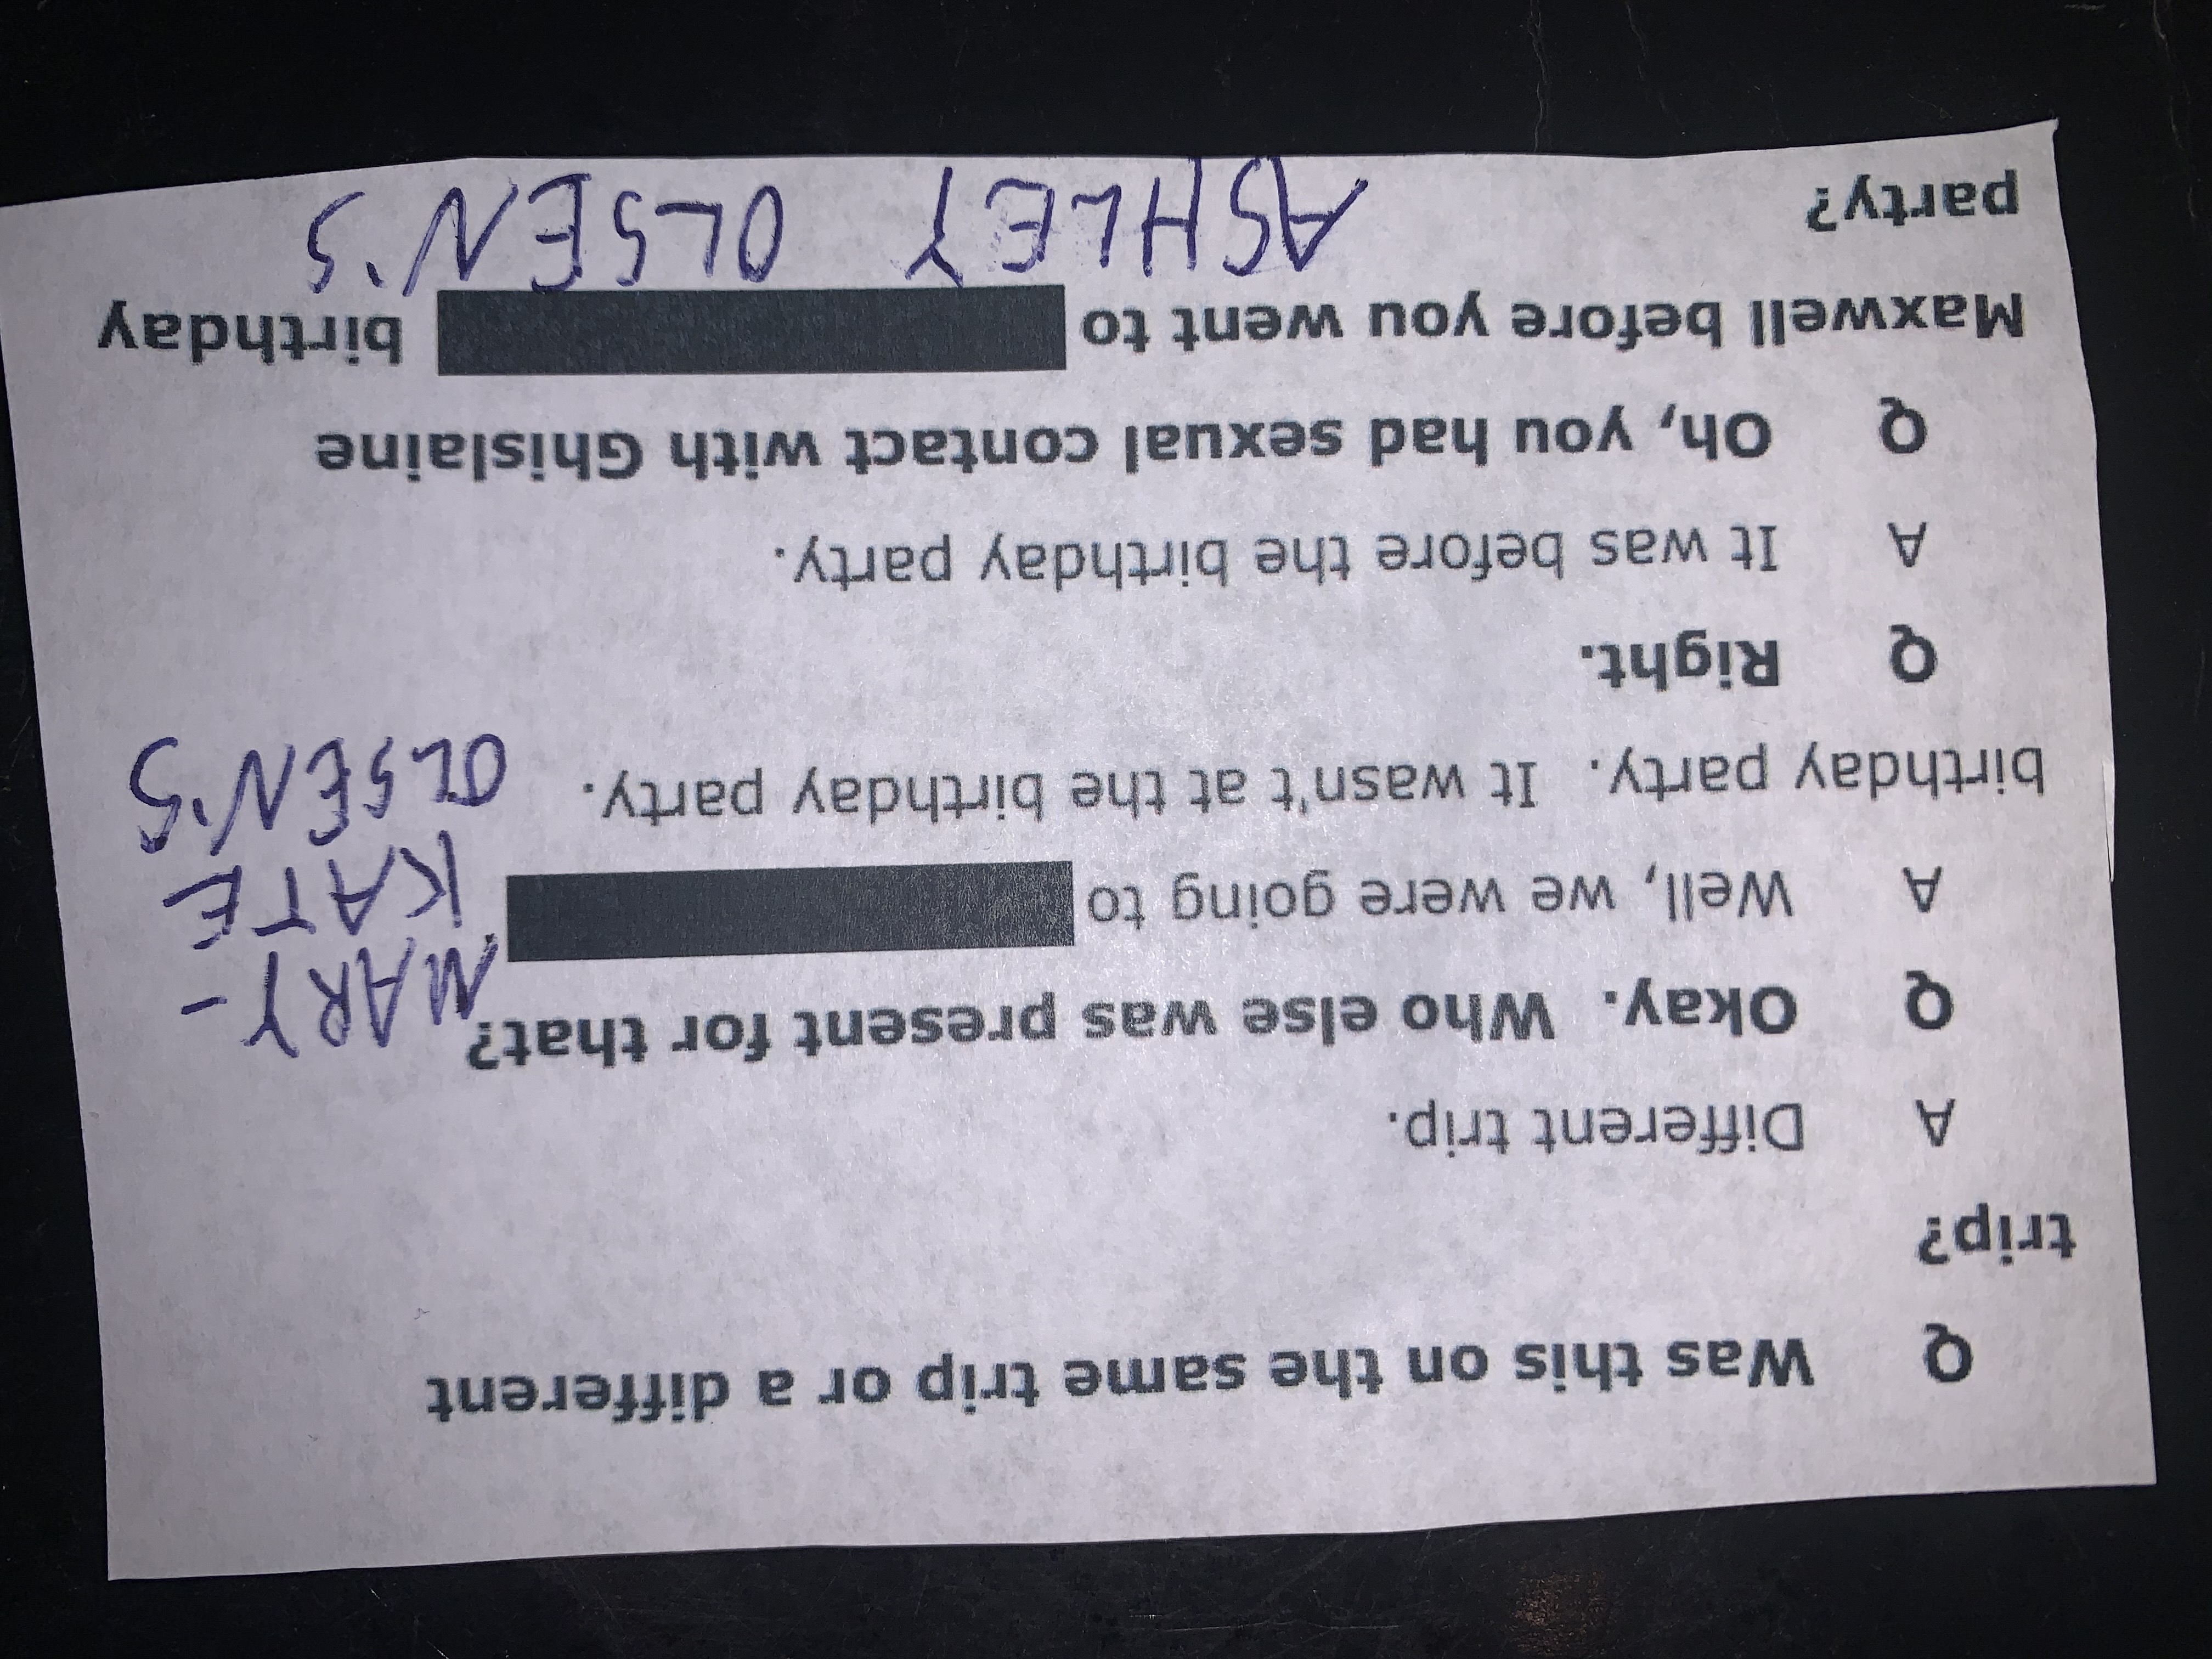 Q Was this on the same trip or a different
trip?
A Different trip.
Q Okay. Who else was present for that?
MARY-
KATE
OLSEN'S
A Well, we were going to
birthday party. It wasn't at the birthday party.
Q Right.
A It was before the birthday party.
Q Oh, you had sexual contact with Ghislaine
Maxwell before you went to birthday
ASHLEY OLSEN'S
party?